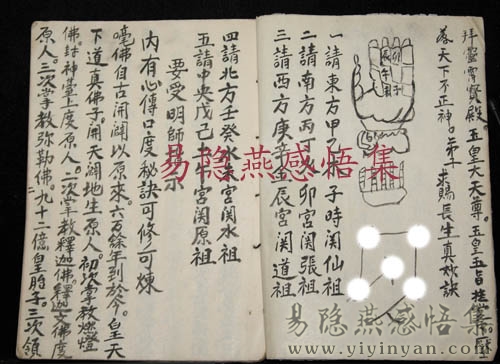 拜靈霄寶殿。五皇大天尊。五皇玉旨
落天下不正神。弟子求賜長生真妙訣
一請東方甲乙木子時関仙祖
二請南方丙丁火卯宮関張祖
三請西方庚辛金辰宮関道祖
四請北方壬癸水未宮関水祖
五請中央戊己土午宮関原祖
要受明師指示
內有心傳口度秘訣可修可煉
佛自古開闢以原來。六万餘年到於今。皇天
下道真佛子。開天闢地生原人。初次掌教燃燈
佛。封神臺上度原人。二次掌教釋迦佛。釋迦文佛度
原人。三次掌教弥勒佛。九十二億皇胎子。三次領
易隐燕感悟集
易隐燕感悟集
www.yiyinyan.com